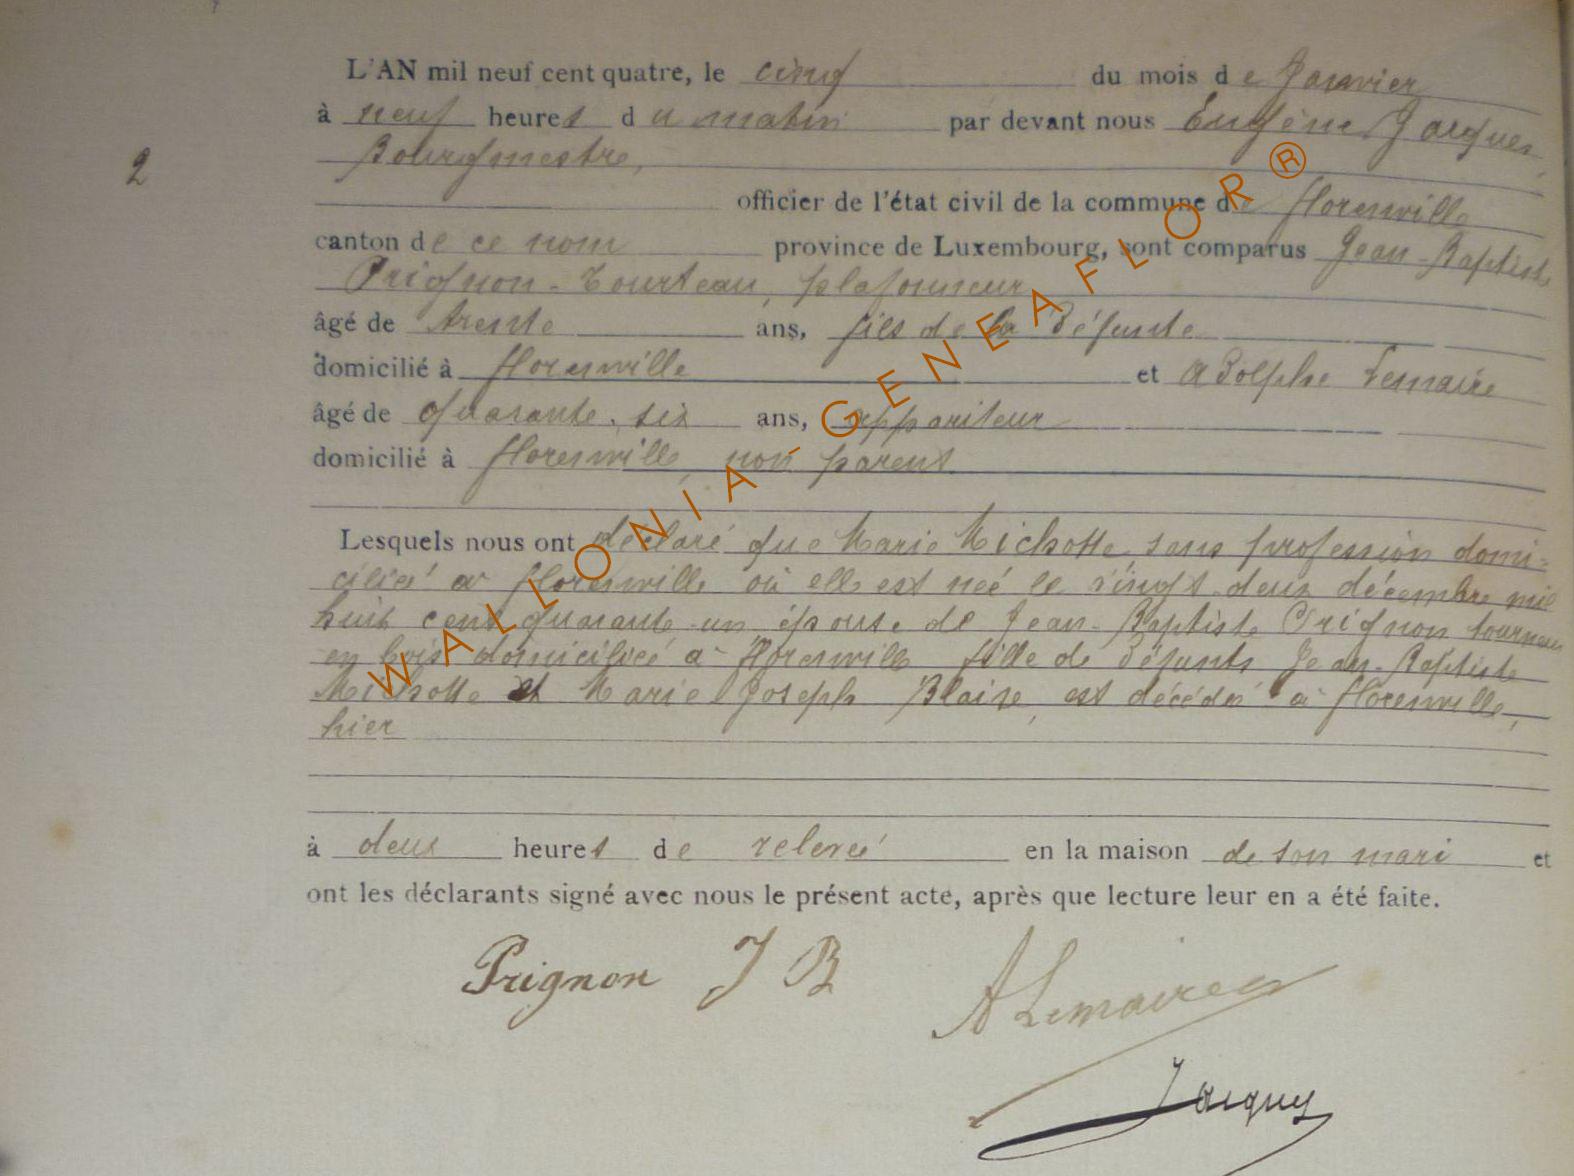 L'AN mil neuf cent quatre, le cinq du mois de Janvier
à neuf heures du matin par devant nous Eugène Jacques,
2
Bourgmestre,
officier de l'état civil de la commune de florenville
canton de ce nom province de Luxembourg, sont comparus Jean-Baptiste
Prignon-Tourteau, plafonneur
âgé de trente ans, fils de la défunte
domicilié à florenville et Adolphe Lemaire
âgé de quarante-six ans, appariteur
domicilié à florenville, non parent
Lesquels nous ont déclaré que Marie Michotte sans profession domi-
ciliée à florenville où elle est née le vingt-deux décembre mil
huit cent quarante-un épouse de Jean-Baptiste Prignon tourneur
en bois domiciliée à florenville fille de défunts Jean-Baptiste
Michotte et Marie Joseph Blaise, est décédée à florenville,
hier
à deux heures de relevée en la maison de son mari et
ont les déclarants signé avec nous le présent acte, après que lecture leur en a été faite.
Prignon J B
A Lemaire
Jacques
WALLONIA-GENEAFLOR®